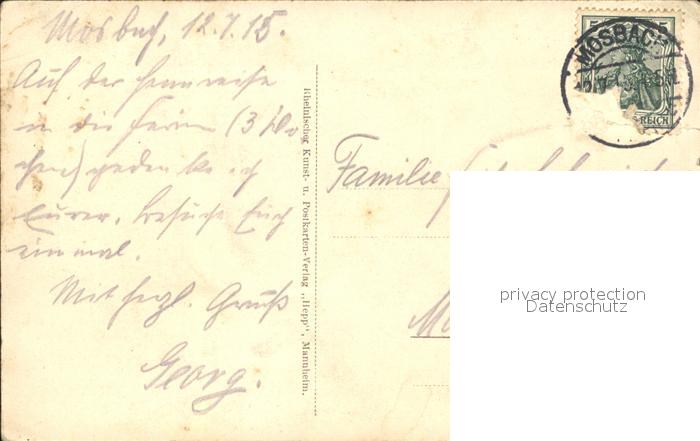 Mosbach, 12.7.15.
Auf der Heimreise
in die Ferien (3 Wo
chen) gedenke ich
Eurer. Besuche Euch
einmal.
Mit herzl. Gruß
Georg.
Rheinischer Kunst- u. Postkarten-Verlag „Hepp“, Mannheim.
5 5
MOSBACH
REICH
Familie
privacy protection
Datenschutz